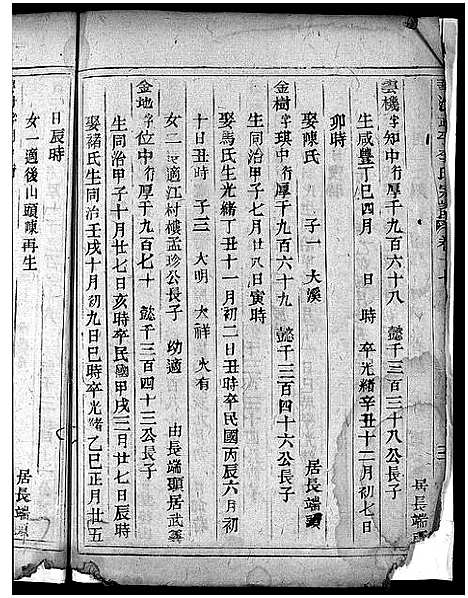 雲機字知中行厚千九百六十八 懿千三百三十八公長子
生咸豐丁巳四月 日 時 卒光緒辛丑十二月初七日
卯時 居長端頭
娶陳氏 子一 大溪 居長端頭
金樹字琪中行厚千九百六十九 懿千三百四十六公長子
生同治甲子七月廿八日寅時
娶馬氏生光緒丁丑十一月初二日丑時卒民國丙辰六月初
十日丑時 子三 大明 大祥 火有
女二 長適江村樓孟珍公長子 幼適 由長端頭居武義
金地字位中行厚千九百七十 懿千三百四十三公長子
生同治甲子十月廿七日亥時卒民國甲戌三月廿七日辰時
娶褚氏生同治壬戌十月初九日巳時卒光緒乙巳正月廿五
日辰時
女一適後山頭陳再生 居長端頭